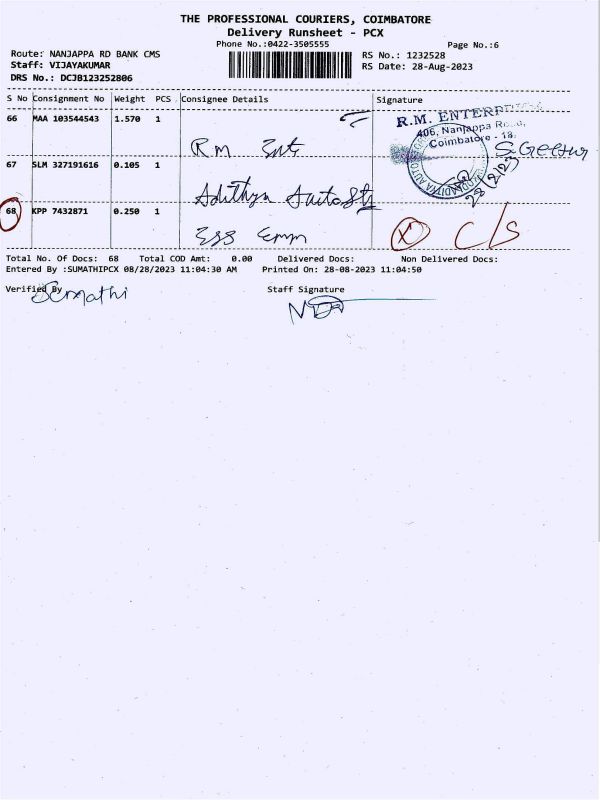 THE PROFESSIONAL COURIERS, COIMBATORE
Delivery Runsheet - PCX
Phone No.:0422-3505555
Page No.:6
Route: NANJAPPA RD BANK CMS
Staff: VIJAYAKUMAR
DRS No.: DCJB123252806
RS No.: 1232528
RS Date: 28-Aug-2023
S No Consignment No Weight PCS Consignee Details Signature
66 MAA 103544543 1.570 1
Rm Ents
R.M. ENTERPRISES
406, Nanjappa Road,
Coimbatore - 18.
S. Geetha
67 SLM 327191616 0.105 1
Adithya Auto
68 KPP 7432871 0.250 1
X C/S
Total No. Of Docs: 68 Total COD Amt: 0.00 Delivered Docs: Non Delivered Docs:
Entered By :SUMATHIPCX 08/28/2023 11:04:30 AM Printed On: 28-08-2023 11:04:50
Verified By
Staff Signature